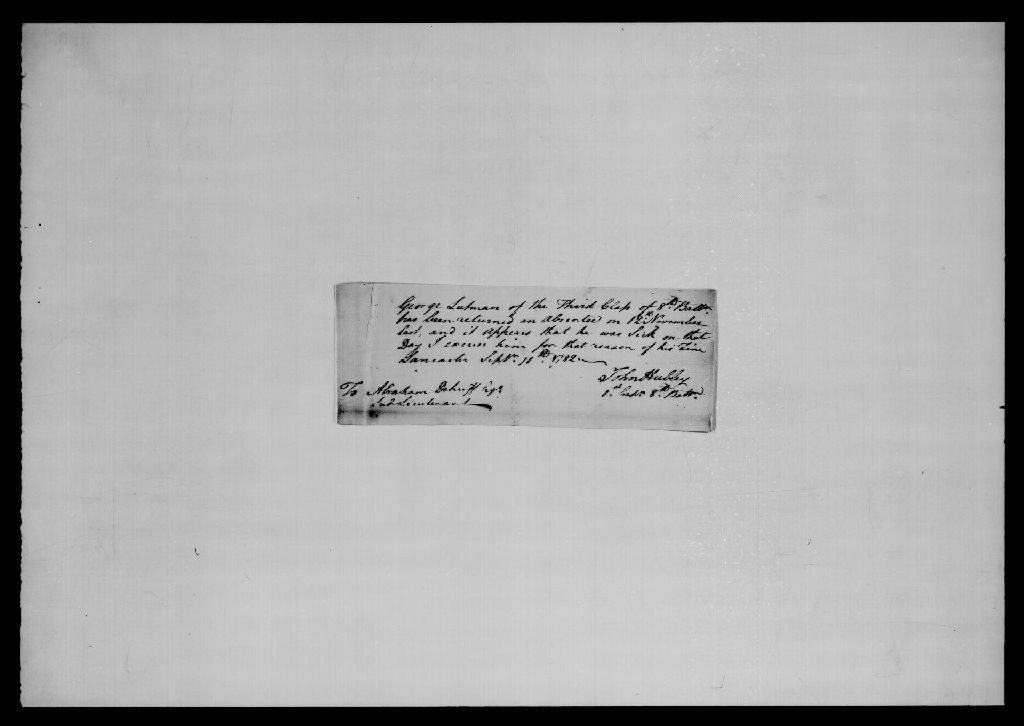 George Lutman of the Third Class of 8th Battn
has been returned an absentee on 12th November
last, and it appears that he was Sick on that
Day I excuse him for that reason of his Fine
Lancaster Septr. 10th 1782
John Hubley
1st Capt. 8th Battn.
To Abraham Dehuff Esqr.
Sub Lieutenant